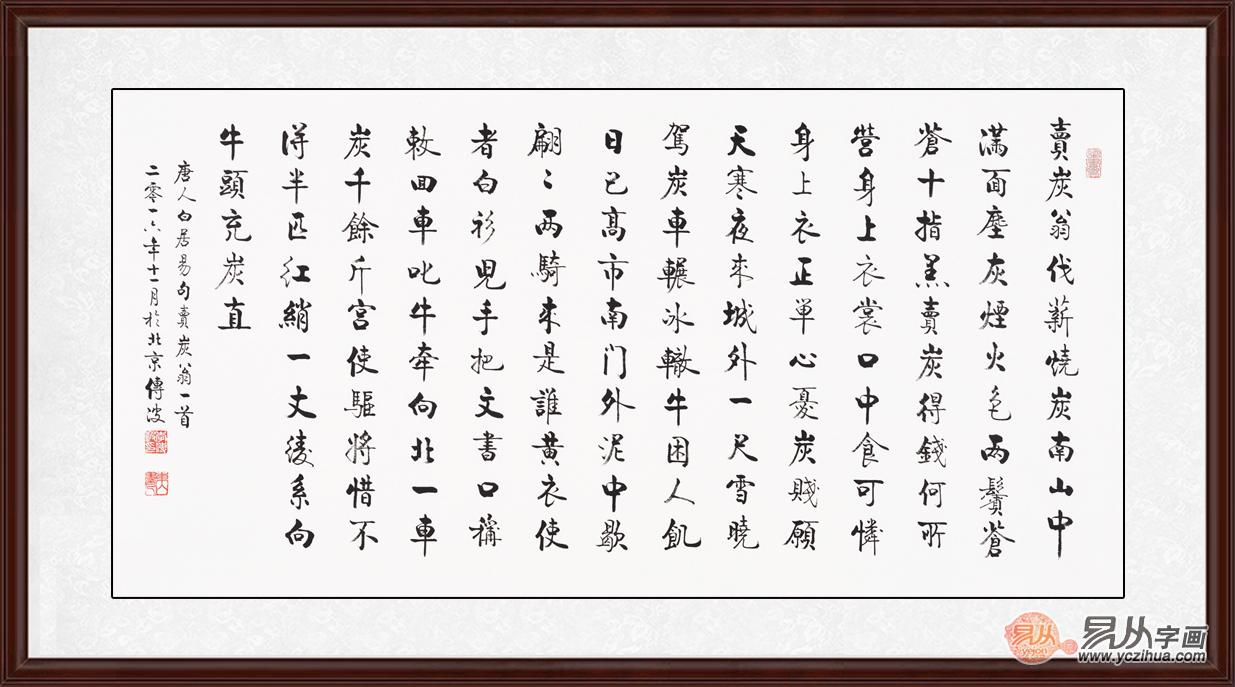 賣炭翁伐薪燒炭南山中
滿面塵灰煙火色兩鬢蒼
蒼十指黑賣炭得錢何所
營身上衣裳口中食可憐
身上衣正单心憂炭賤願
天寒夜來城外一尺雪曉
駕炭車輾冰轍牛困人飢
日已高市南门外泥中歇
翩〻两騎來是誰黄衣使
者白衫兒手把文書口稱
敕回車叱牛牽向北一車
炭千餘斤宮使驅將惜不
得半匹红綃一丈綾系向
牛頭充炭直
唐人白居易句賣炭翁一首
二零一六年十一月於北京傳波
易从
yejon
易从字画
www.yczihua.com